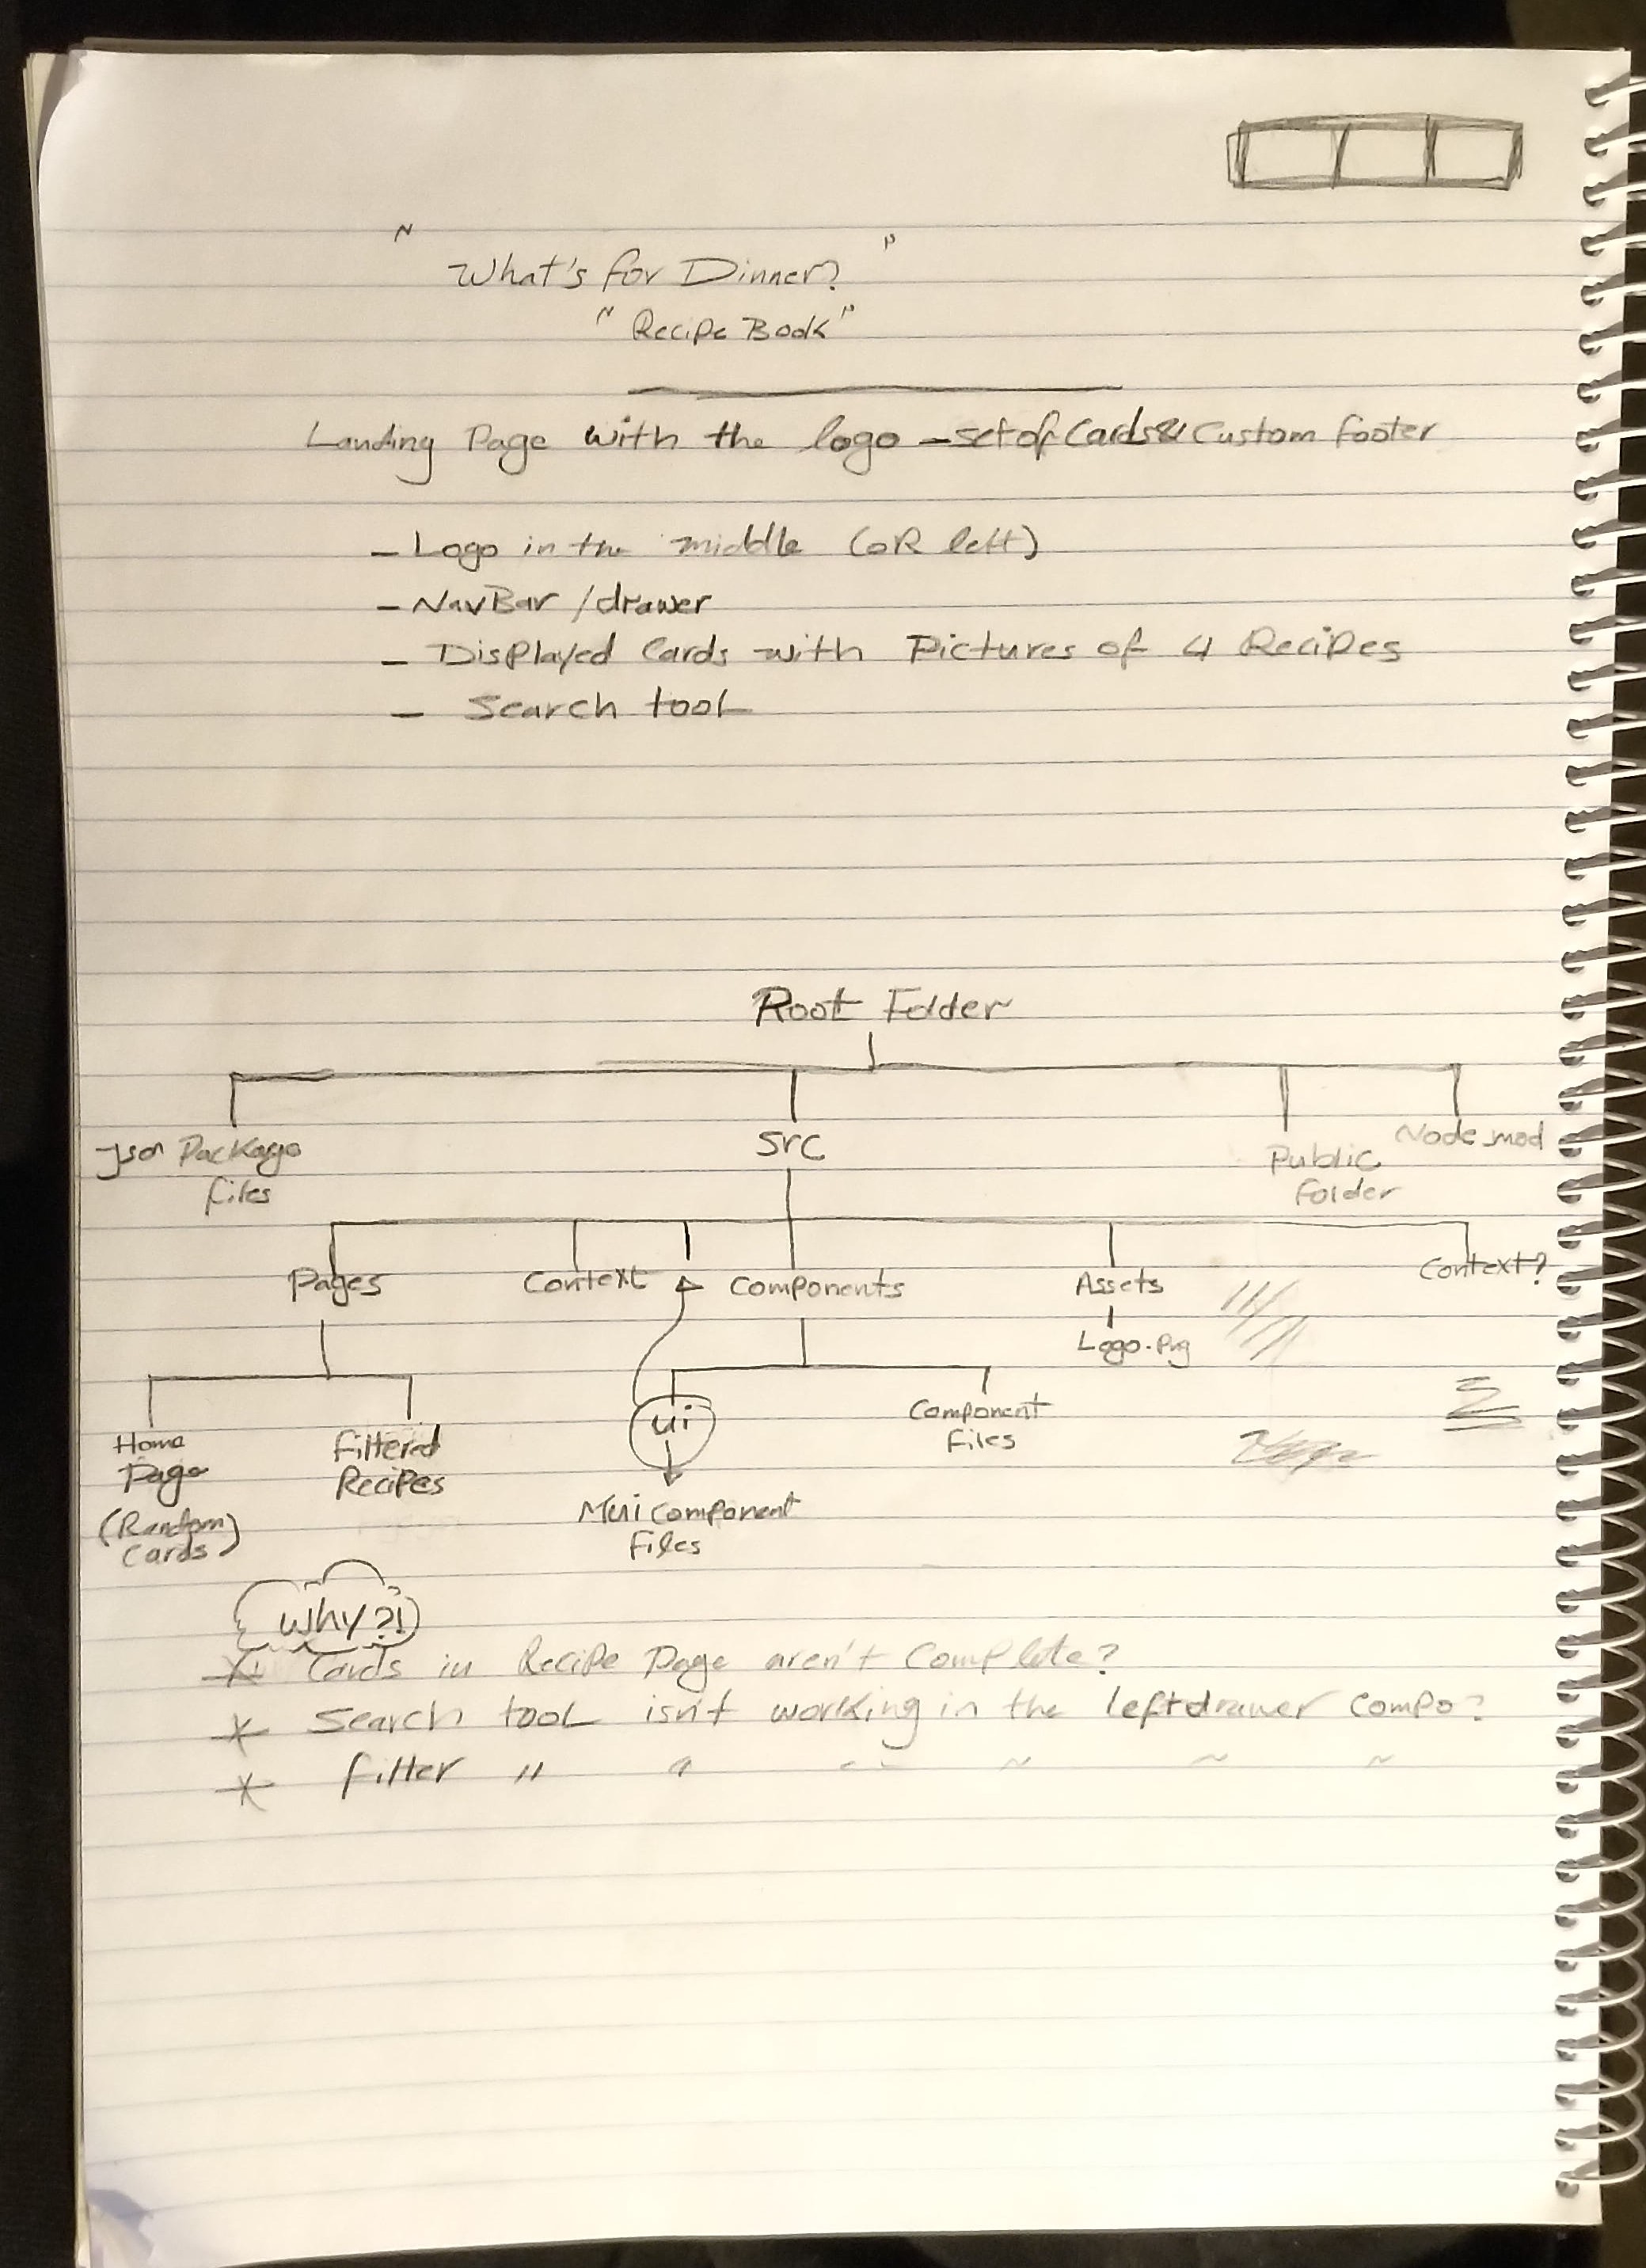 " What's for Dinner? "
" Recipe Book "
Landing Page with the logo - set of Cards & Custom footer
- Logo in the middle (OR left)
- NavBar / drawer
- Displayed Cards with Pictures of 4 Recipes
- Search tool
Root Folder
Json Package files
src
Public Folder
Node_mod
Pages
Context
Components
Assets
Context?
Logo.png
Home Page (Random Cards)
Filtered Recipes
ui
Component Files
Mui Component Files
Why?!
* Cards in Recipe Page aren't Complete?
* Search tool isn't working in the left drawer compo?
* filter " " " " " "